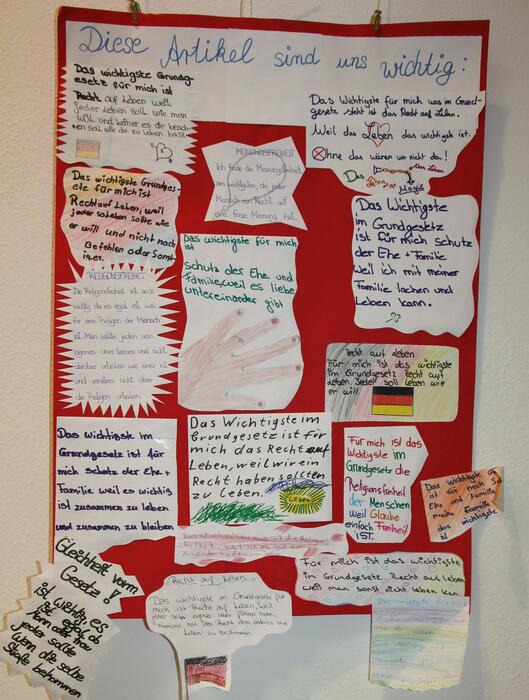 Diese Artikel sind uns wichtig:
Das wichtigste Grundg-
esetz für mich ist
Recht auf Leben weil
jeder soll wie man
will und keiner es dir
nen soll wie du zu leben hast.
Das Wichtigste für mich was im Grund-
gesetz steht ist das Recht auf Leben.
Weil das Leben das wichtigste ist.
Ohne das wären wir nicht da!
Das Leben
ist Magie
MEINUNGSFREIHEIT
Ich finde die Meinungsfreiheit
am wichtigsten, da jeder
Mensch ein Recht auf
eine freie Meinung hat.
Das wichtigste Grundges-
etz für mich ist
Recht auf Leben, weil
jeder so leben sollte wie
er will und nicht nach
Befehlen oder Sonst
Das Wichtigste
im Grundgesetz
ist für mich schutz
der Ehe + Familie
Weil ich mit meiner
Familie lachen und
Leben kann.
Das wichtigste für mich
ist
Schutz des Ehe und
Familie, weil es liebe
untereinander gibt
RELIGIONSFREIHEIT
Die Religionsfreiheit ist auch
wichtig da es egal ist was
für eine Religion der Mensch
ist. Man sollte jeden sein
eigenes Leben lassen und nicht
darüber urteilen wie einer ist
und vorallem nicht über
die Religion urteilen.
Recht auf Leben
Für mich ist das wichtigste
im Grundgesetz Recht auf
Leben. Jeder soll leben wie
er will.
Das wichtigste im
Grundgesetz ist für
mich schutz der Ehe +
Familie weil es wichtig
ist zusammen zu leben
und zusammen zu bleiben
Das Wichtigste im
Grundgesetz ist für
mich das Recht auf
Leben, weil wir ein
Recht haben sollten
zu Leben.
Leben
Für mich ist das
Wichtigste im
Grundgesetz die
Religionsfreiheit
der Menschen
Weil Glaube
einfach Freiheit
IST.
Das wichtigste
ist für mich
Ehe und Familie
meine Familie
das wichtigste
ist
Gleichheit vorm
Gesetz!
ist wichtig es
ist egal ob
Mann oder Frau
jeder sollte
wenn die selbe
Strafe bekommen
Für mich ist das wichtigste
im Grundgesetz Recht auf leben
weil man sonst nicht leben kan.
Recht auf Leben
Das wichtigste im Grundgesetz für
mich ist Recht auf Leben, weil
jeder sein eigenes Leben führen kann.
niemand hat das Recht dem anderen sein
Leben zu bestimmen.